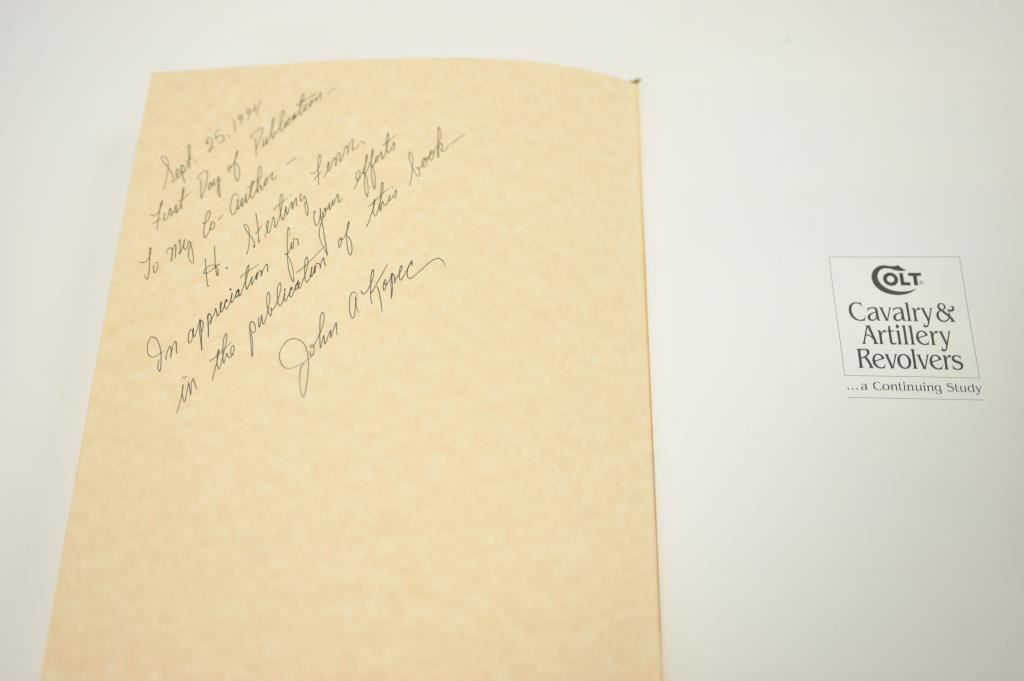 Sept. 25, 1994
First Day of Publication —
To My Co-Author —
H. Sterling Fenn,
In appreciation for your efforts
in the publication of this book —
John A Kopec
COLT
Cavalry &
Artillery
Revolvers
...a Continuing Study